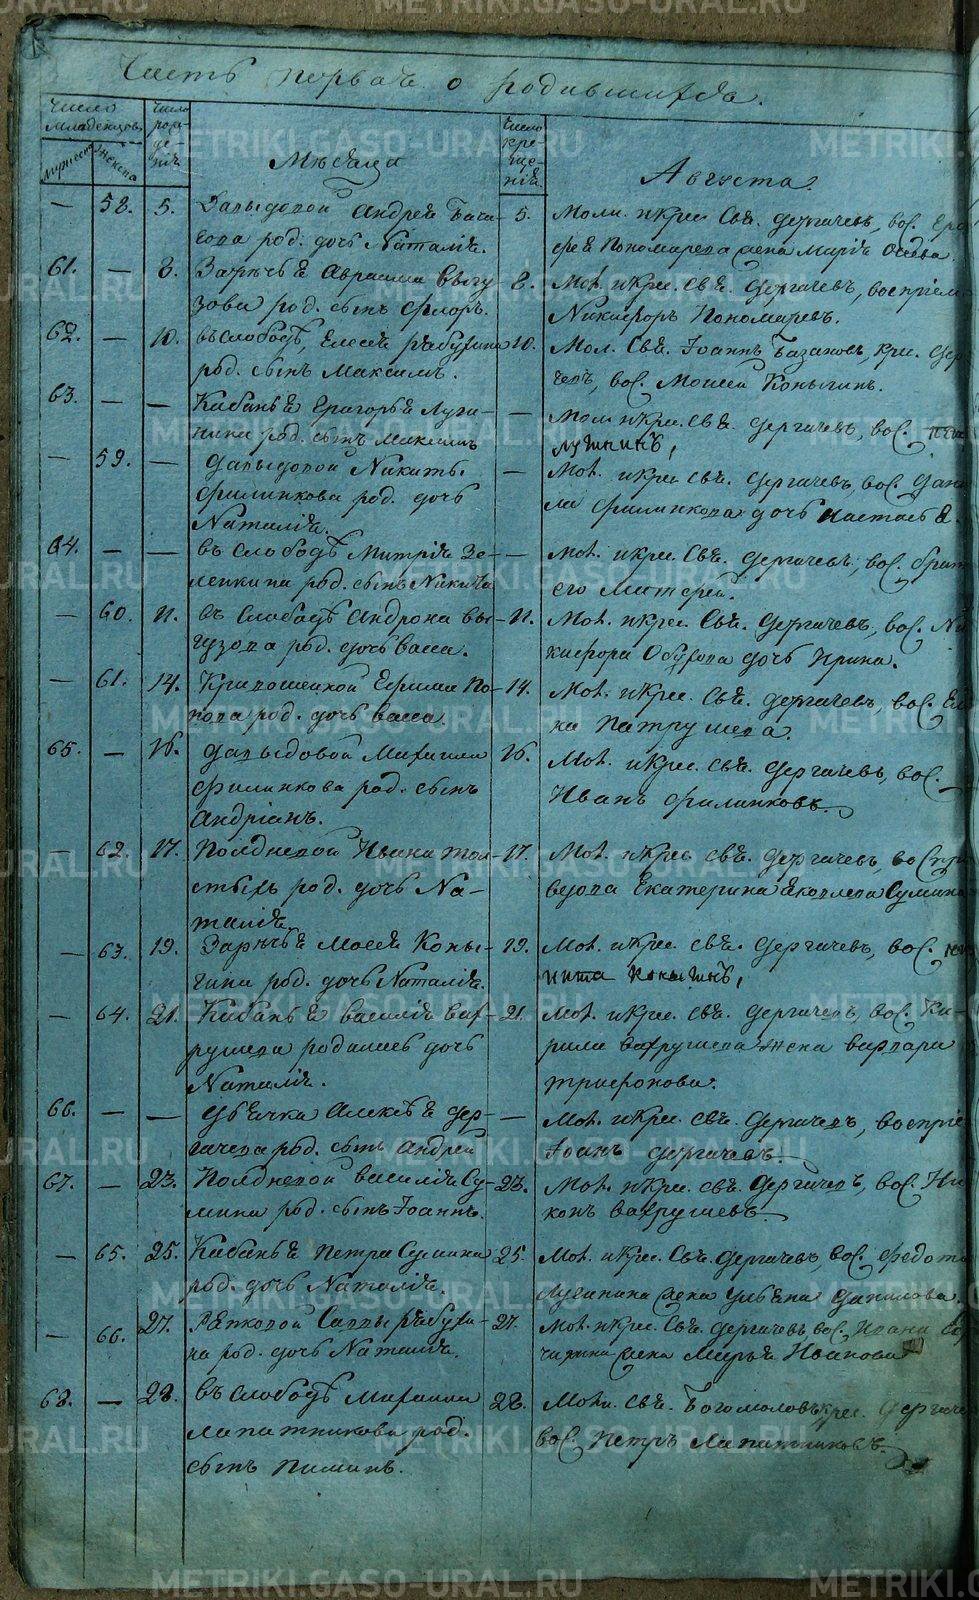 Часть первая о родившихся.
Число младенцов.
мужеск
женска
Число рожденія
Мѣсяца
Число крещенія
Августа.
— 58. 5. Давыдовой Андрея Бача
рода род. дочь Наталія.
5. Моли. икрес. Свя. Дергачевъ, вос.
фея Пономарева жена Марія
61. — 8. Зарѣчья Авраама Выгу
зова род. сынъ Флоръ.
8. Мол. икрес. свя. Дергачевъ, воспріем.
Никифоръ Пономаревъ.
62. — 10. въ слободѣ, Елесея Рябухина
род. сынъ Максимъ.
10. Мол. Свя. Іоаннъ Базановъ, крес. Дер
чевъ, вос. Моисей Копыгинъ.
63. — — Кабанья Григорья Луги-
нина род. сынъ Максимъ
— Мол икрес. свя. Дергачевъ, вос.
Лугининъ,
— 59. — Давыдовой Никиты
Филинкова род. дочь
Наталія.
— Мол. икрес свя. Дергачевъ, вос. Дани
ла Филинкова дочь Настасья.
64. — — въ слободѣ Митрія Зе
ленкина род. сынъ Никита
— Мол. икрес. Свя. Дергачевъ, вос. брат
его
— 60. 11. въ слободѣ Андрона Вы-
гузова род. дочь васса.
11. Мол. икрес. Свя. Дергачевъ, вос. Ни
кифора Обухова дочь Ирина.
— 61. 14. Кривошеиной Ефима По-
пова род. дочь васса.
14. Мол. икрес. свя. Дергачевъ, вос.
Патрушева.
65. — 16. Давыдовой Михаила
Филинкова род. сынъ
Андріанъ.
16. Мол. икрес. свя. Дергачевъ, вос.
Иванъ Филинковъ.
— 62. 17. Полдневой Ивана Тол-
стыхъ род. дочь На-
талія.
17. Мол. икрес. свя. Дергачевъ, во Спри
везова Екатерина Яковлева Сумина
— 63. 19. Зарѣчья Мосея Копы-
гина род. дочь Наталія.
19. Мол. икрес. свя. Дергачевъ, вос.
нита Копыгинъ,
— 64. 21. Кабанья василія Вах-
рушева родилась дочь
Наталія.
21. Мол. икрес. свя. Дергачевъ, вос. Ки-
рила Вахрушева жена варвара
трифонова.
66. — — Убѣячка Алексѣя Дер-
гачева род. сынъ Андрей
— Мол. икрес. свя. Дергачевъ, воспріе
Іоанъ Дергачевъ.
67. — 23. Полдневой василія Су-
мина род. сынъ Іоаннъ.
23. Мол. икрес. свя. Дергачевъ, вос. Ни
конъ Вахрушевъ.
— 65. 25. Кабанья Петра Сумина
род. дочь Наталія.
25. Мол. икрес. Свя. Дергачевъ, вос. Федота
Лугинина жена Ульяна Данилова.
— 66. 27. Раскодой Саввы Рябухи-
на род. дочь Наталія.
27. Мол. икрес. Свя. Дергачевъ, вос. Ивана
жена Марья Иванова
68. — 28. въ слободѣ Михаила
Лапатникова род.
сынъ Пиминъ.
28. Моли. свя. Богомоловъ, крес. Дергаче
вос. Петръ Лапатниковъ.
METRIKI.GASO-URAL.RU